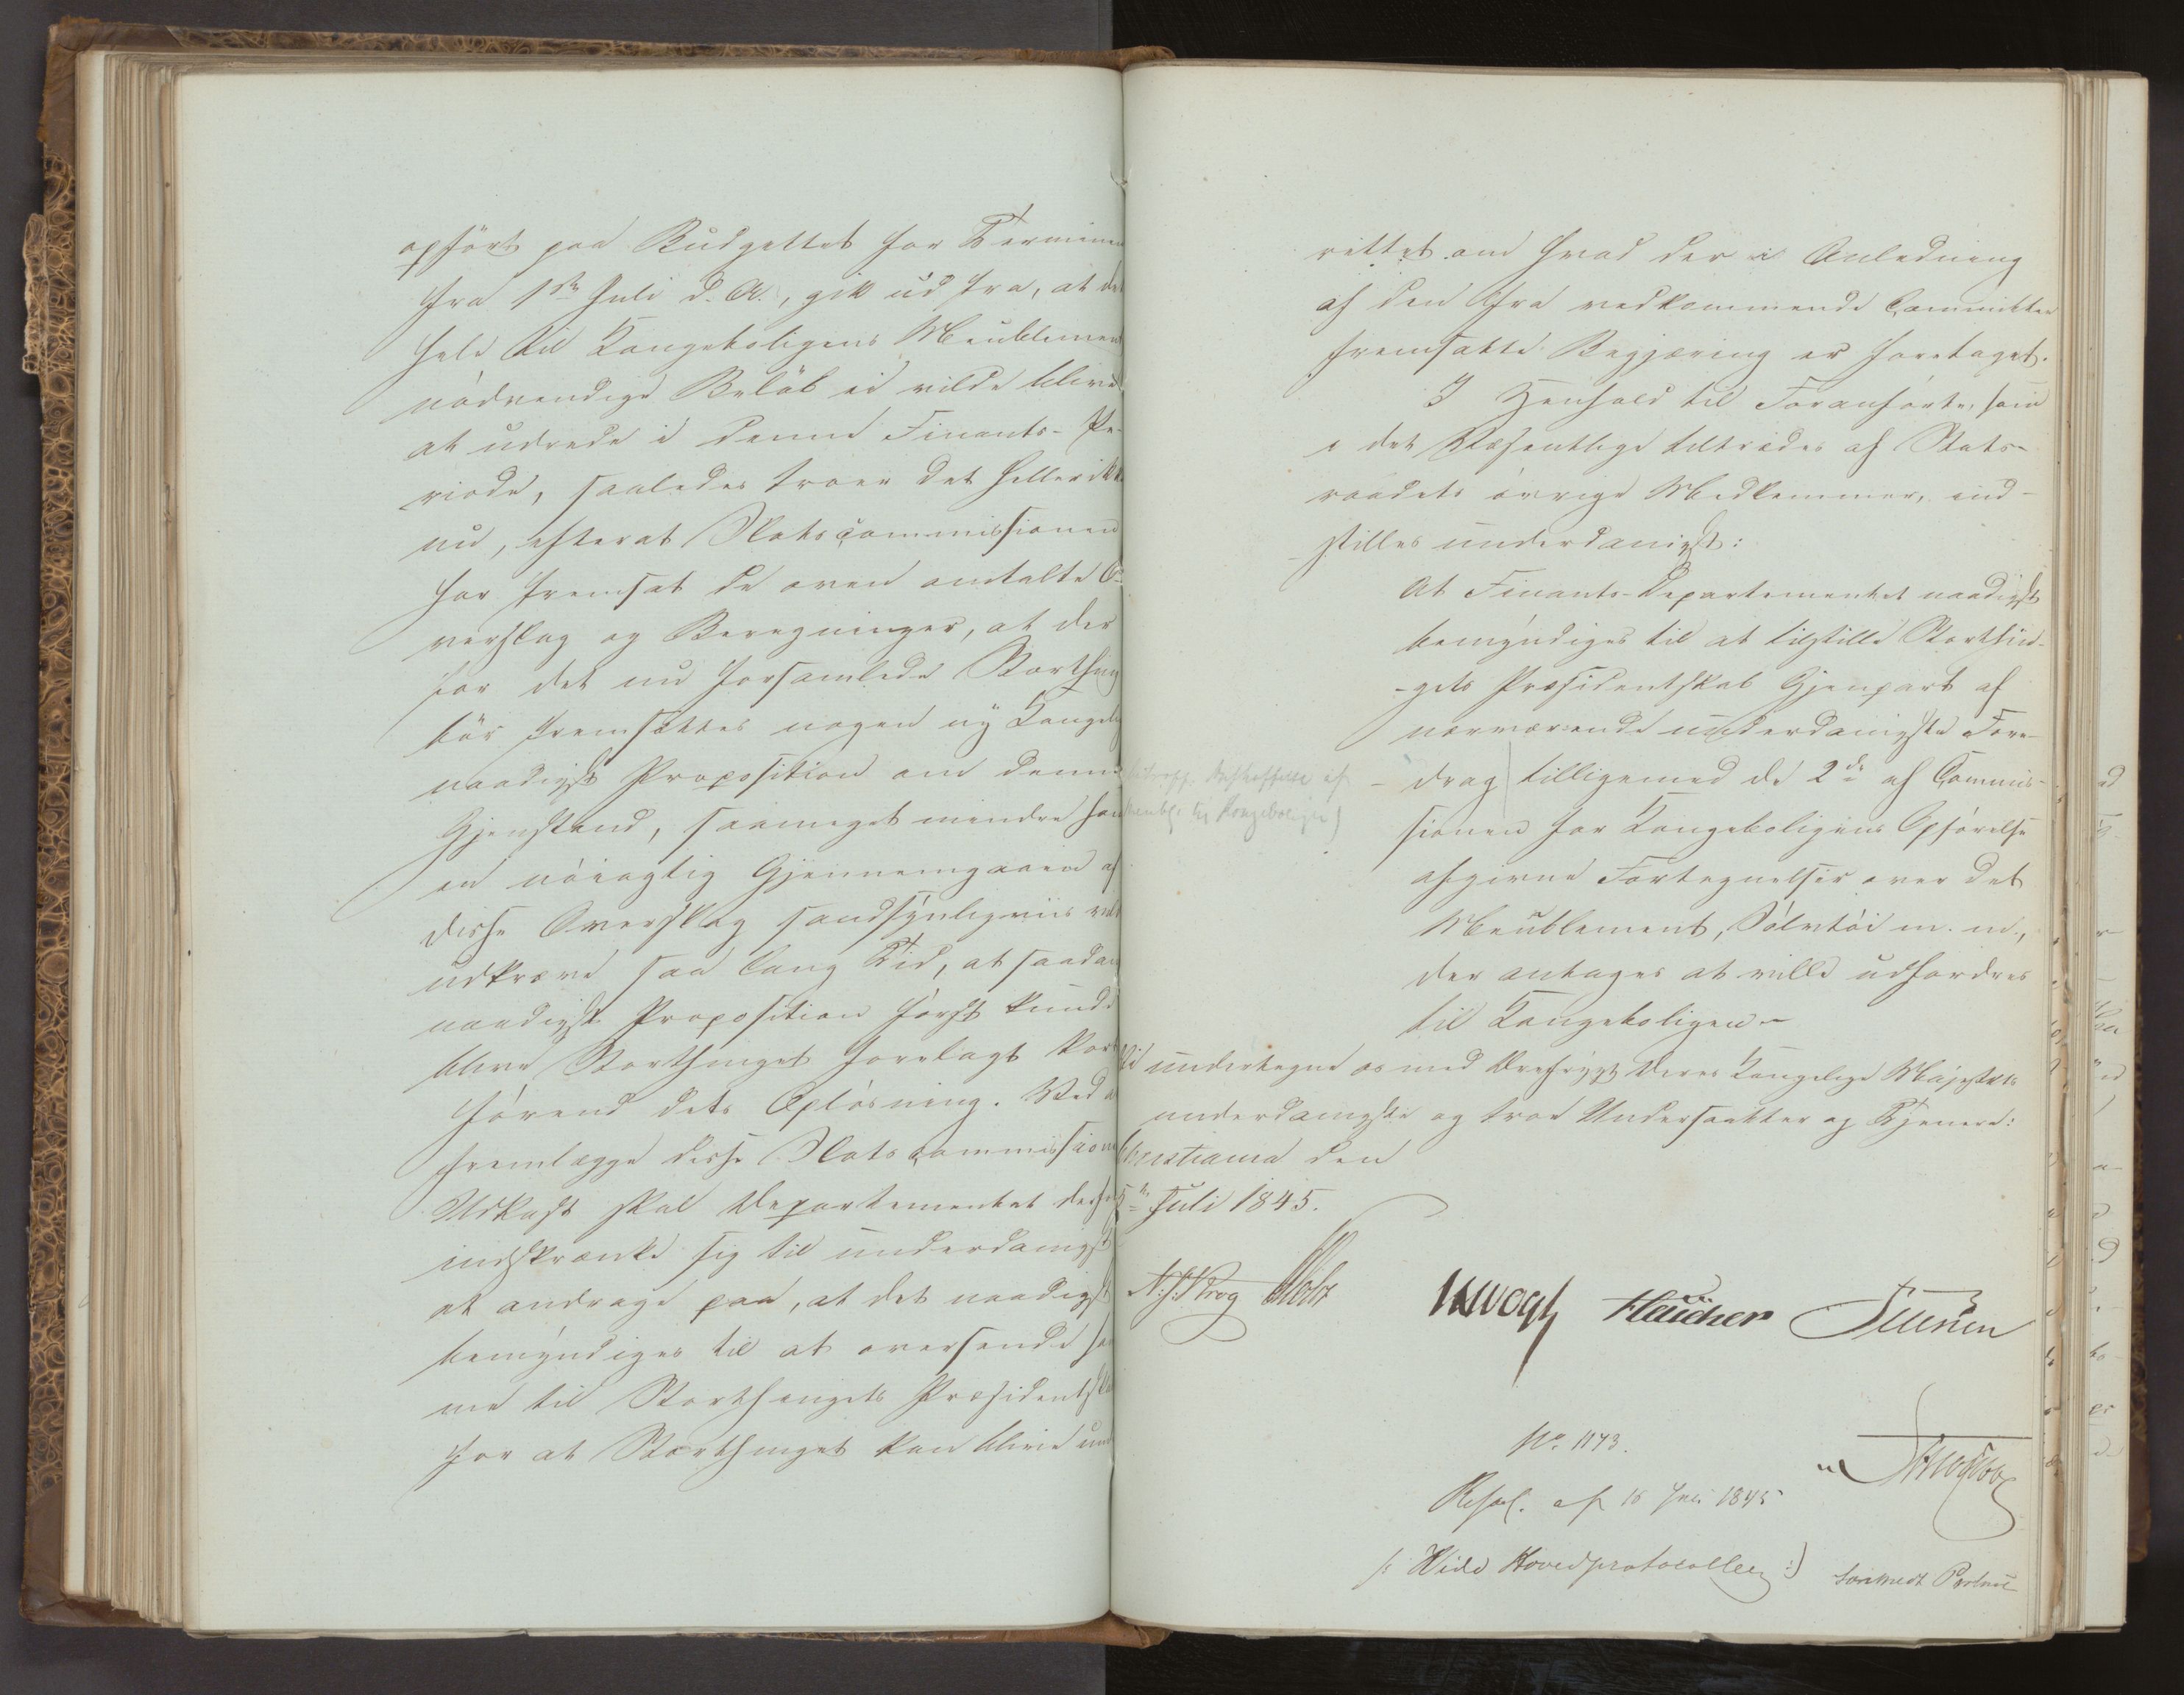 opført paa Budgettet for Terminen
fra 1ste Juli d. A., gik ud fra, at det
hele til Kongeboligens Meublement
nødvendige Beløb ei vilde blive
at udrede i denne Finants-Pe-
riode, saaledes troer det heller ikke
nu, efterat Slotscommissionen
har fremsat de oven omtalte O-
verslag og Beregninger, at der
for det nu forsamlede Storthing
bör fremsættes nogen ny Kongelig
naadigst Proposition om denne
Gjenstand, saameget mindre som
en nöiagtig Gjennemgaaen af
disse Overslag sandsynligviis vil
udkræve saa lang Tid, at saadan
naadigst Proposition först kunde
blive Storthinget forelagt kort
förend dets Oplösning. Ved at
fremlægge disse Slotscommissionens
Udkast skal Departementet derfor
indskrænke sig til underdanigst
at andrage paa, at det naadigst
bemyndiges til at oversende sam-
me til Storthingets Præsidentskab
for at Storthinget kan blive under
rettet om hvad der i Anledning
af den fra vedkommende Committee
fremsatte Begjæring er foretaget.
I Henhold til Foranförte, som
i det Væsentlige tiltrædes af Stats-
raadets övrige Medlemmer, ind-
stilles underdanigst:
At Finants-Departementet naadigst
bemyndiges til at tilstille Storthin-
-gets Præsidentskab Gjenpart af
nærværende underdanigste Fore-
-drag tilligemed de 2de af Commis-
sionen for Kongeboligens Opförelse
afgivne Fortegnelser over det
Meublement, Sölvtöi m. m.,
der antages at ville udfordres
til Kongeboligen.-
(betræff. Anskaffelse af
meubl. til Kongeboligen)
Vi undertegne os med Ærefrygt Deres Kongelige Majestæts
underdanigste og troe Undersaatter og Tjenere:
Christiania den
5te Juli 1845.
N. J. Krog Vogt Hauchen
No. 1173.
Resol. af 16 Juli 1845
(: Vide Hovedprotocollen :)